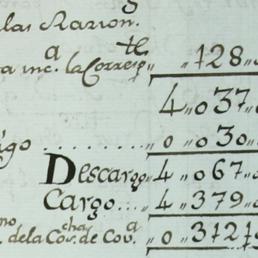 las Racion.
a inc. la Corresp.te „ 128 „
4 „ 037 „
igo ......... „ 0 „ 030 „
Descargo 4 „ 067 „
Cargo... 4 „ 379 „
de la de Cov.a „ 0 „ 312